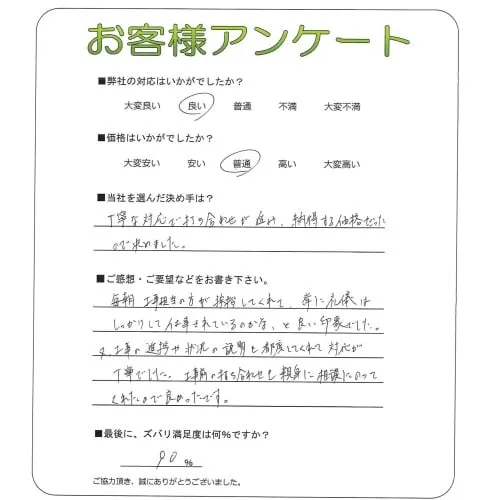 お客様アンケート
■弊社の対応はいかがでしたか?
大変良い 良い 普通 不満 大変不満
■価格はいかがでしたか?
大変安い 安い 普通 高い 大変高い
■当社を選んだ決め手は?
丁寧な対応で打の合わせが 納得する価格だった
ので決めました。
■ご感想・ご要望などをお書き下さい。
毎朝 工事担当の方が挨拶してくれて、常に礼儀は
しっかりして仕事されているのかな、と良い印象でした。
又、工事の進捗や状況の説明も都度してくれて対応が
丁寧でした。工事前の打ち合わせも親身に相談にのって
くれたので良かったです。
■最後に、ズバリ満足度は何%ですか?
90 %
ご協力頂き、誠にありがとうございました。